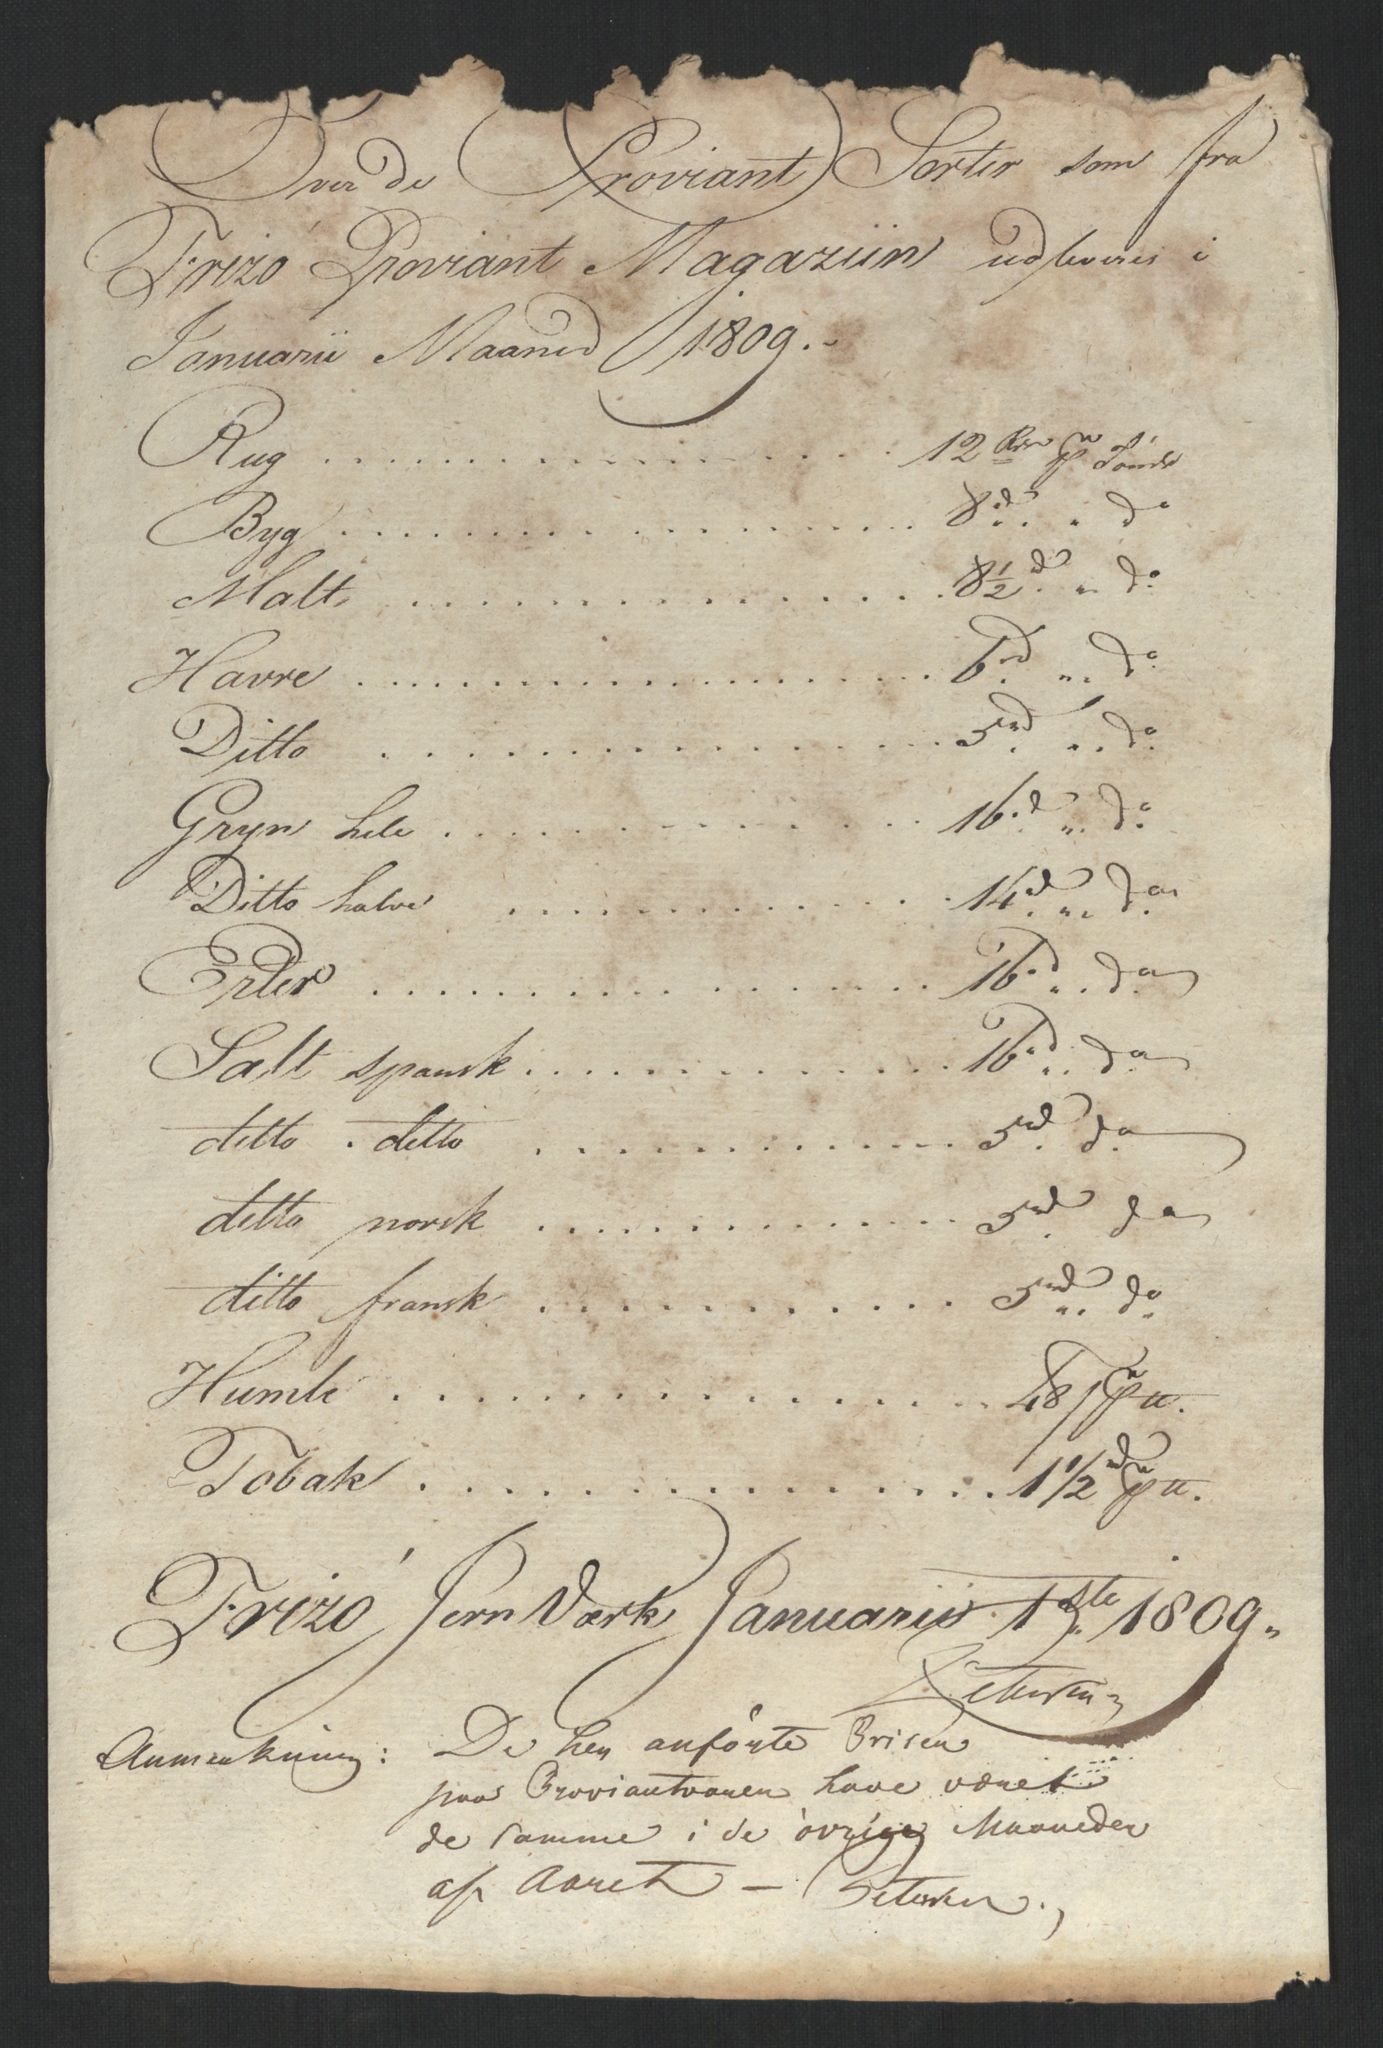 Over de Proviant Sorter som fra
Frizó Proviant Magaziin udleveres i
Januarii Maaned 1809.
Rug . . . 12 Rdr pr Tönde
Byg . . . 8 rd " do
Malt . . . 8 1/2 rd " do
Havre . . . 6 rd " do
Ditto . . . 5 rd " do
Gryn hele . . . 16 rd " do
Ditto halve . . . 14 rd " do
Erter . . . 16 rd " do
Salt spansk . . . 16 rd " do
ditto . ditto . . . 5 rd do
ditto norsk . . . 5 rd do
ditto fransk . . . 5 rd " do
Humle . . . 48 s pr ℔.
Tobak . . . 1 1/2 rd pr ℔.
Frizó Jern Værk Januarii 1ste 1809.
Petersen
Anmerkning: De her anförte Prisen
paa Proviantvaren have været
de samme i de övrige Maaneder
af Aaret — Petersen.